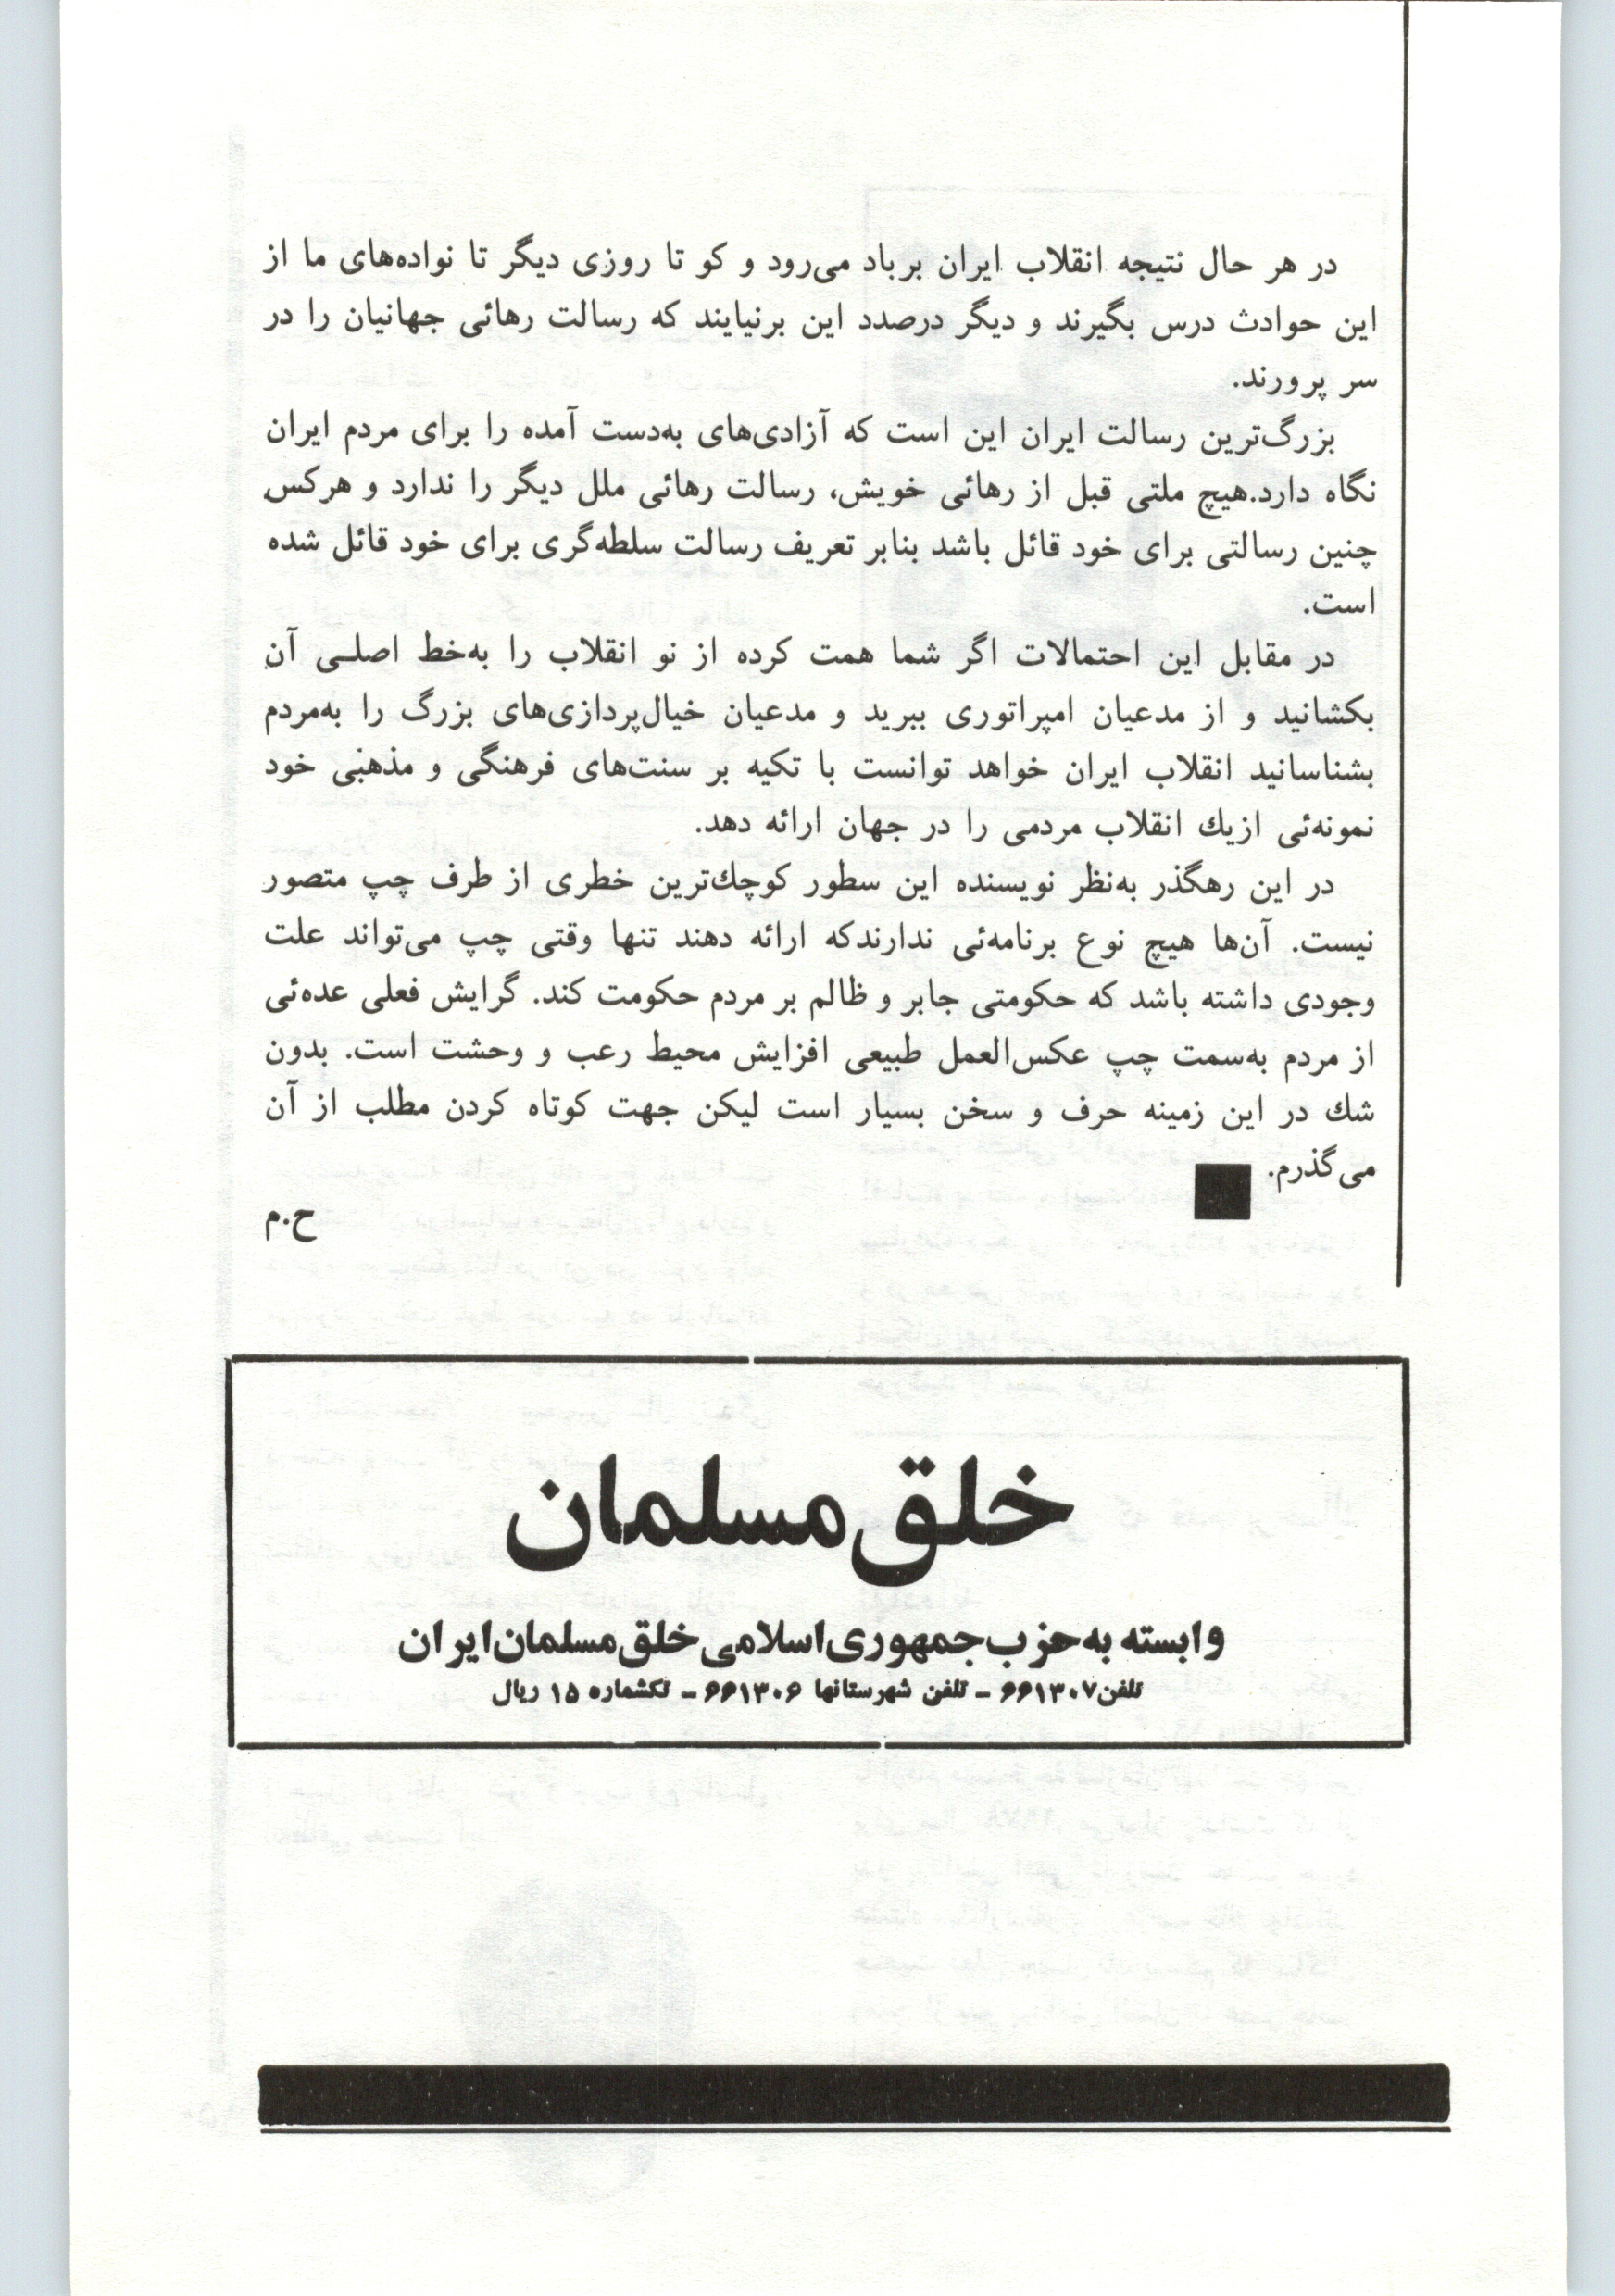 در هر حال نتیجه انقلاب ایران برباد می‌رود و کو تا روزی دیگر تا نواده‌های ما از
این حوادث درس بگیرند و دیگر درصدد این برنیایند که رسالت رهائی جهانیان را در
سر پرورند.
بزرگ‌ترین رسالت ایران این است که آزادی‌های به‌دست آمده را برای مردم ایران
نگاه دارد.هیچ ملتی قبل از رهائی خویش، رسالت رهائی ملل دیگر را ندارد و هرکس
چنین رسالتی برای خود قائل باشد بنابر تعریف رسالت سلطه‌گری برای خود قائل شده
است.
در مقابل این احتمالات اگر شما همت کرده از نو انقلاب را به‌خط اصلـی آن
بکشانید و از مدعیان امپراتوری ببرید و مدعیان خیال‌پردازی‌های بزرگ را به‌مردم
بشناسانید انقلاب ایران خواهد توانست با تکیه بر سنت‌های فرهنگی و مذهبی خود
نمونه‌ئی ازیك انقلاب مردمی را در جهان ارائه دهد.
در این رهگذر به‌نظر نویسنده این سطور کوچك‌ترین خطری از طرف چپ متصور
نیست. آن‌ها هیچ نوع برنامه‌ئی ندارندکه ارائه دهند تنها وقتی چپ می‌تواند علت
وجودی داشته باشد که حکومتی جابر و ظالم بر مردم حکومت کند. گرایش فعلی عده‌ئی
از مردم به‌سمت چپ عکس‌العمل طبیعی افزایش محیط رعب و وحشت است. بدون
شك در این زمینه حرف و سخن بسیار است لیکن جهت کوتاه کردن مطلب از آن
می‌گذرم.
ح.م
خلق مسلمان
وابسته به حزب جمهوری اسلامی خلق مسلمان ایران
تلفن ۶۶۱۳۰۷ – تلفن شهرستانها ۶۶۱۳۰۶ – تکشماره ۱۵ ریال